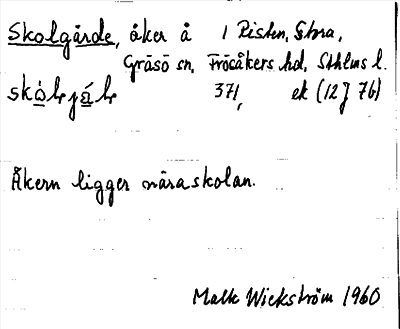 Skolgärde, åker å 1 Risten, Stora,
Gräsö sn, Frösåkers hd, Sthlms l.
371, ek (12J 7b)
Åkern ligger nära skolan.
Mats Wickström 1960